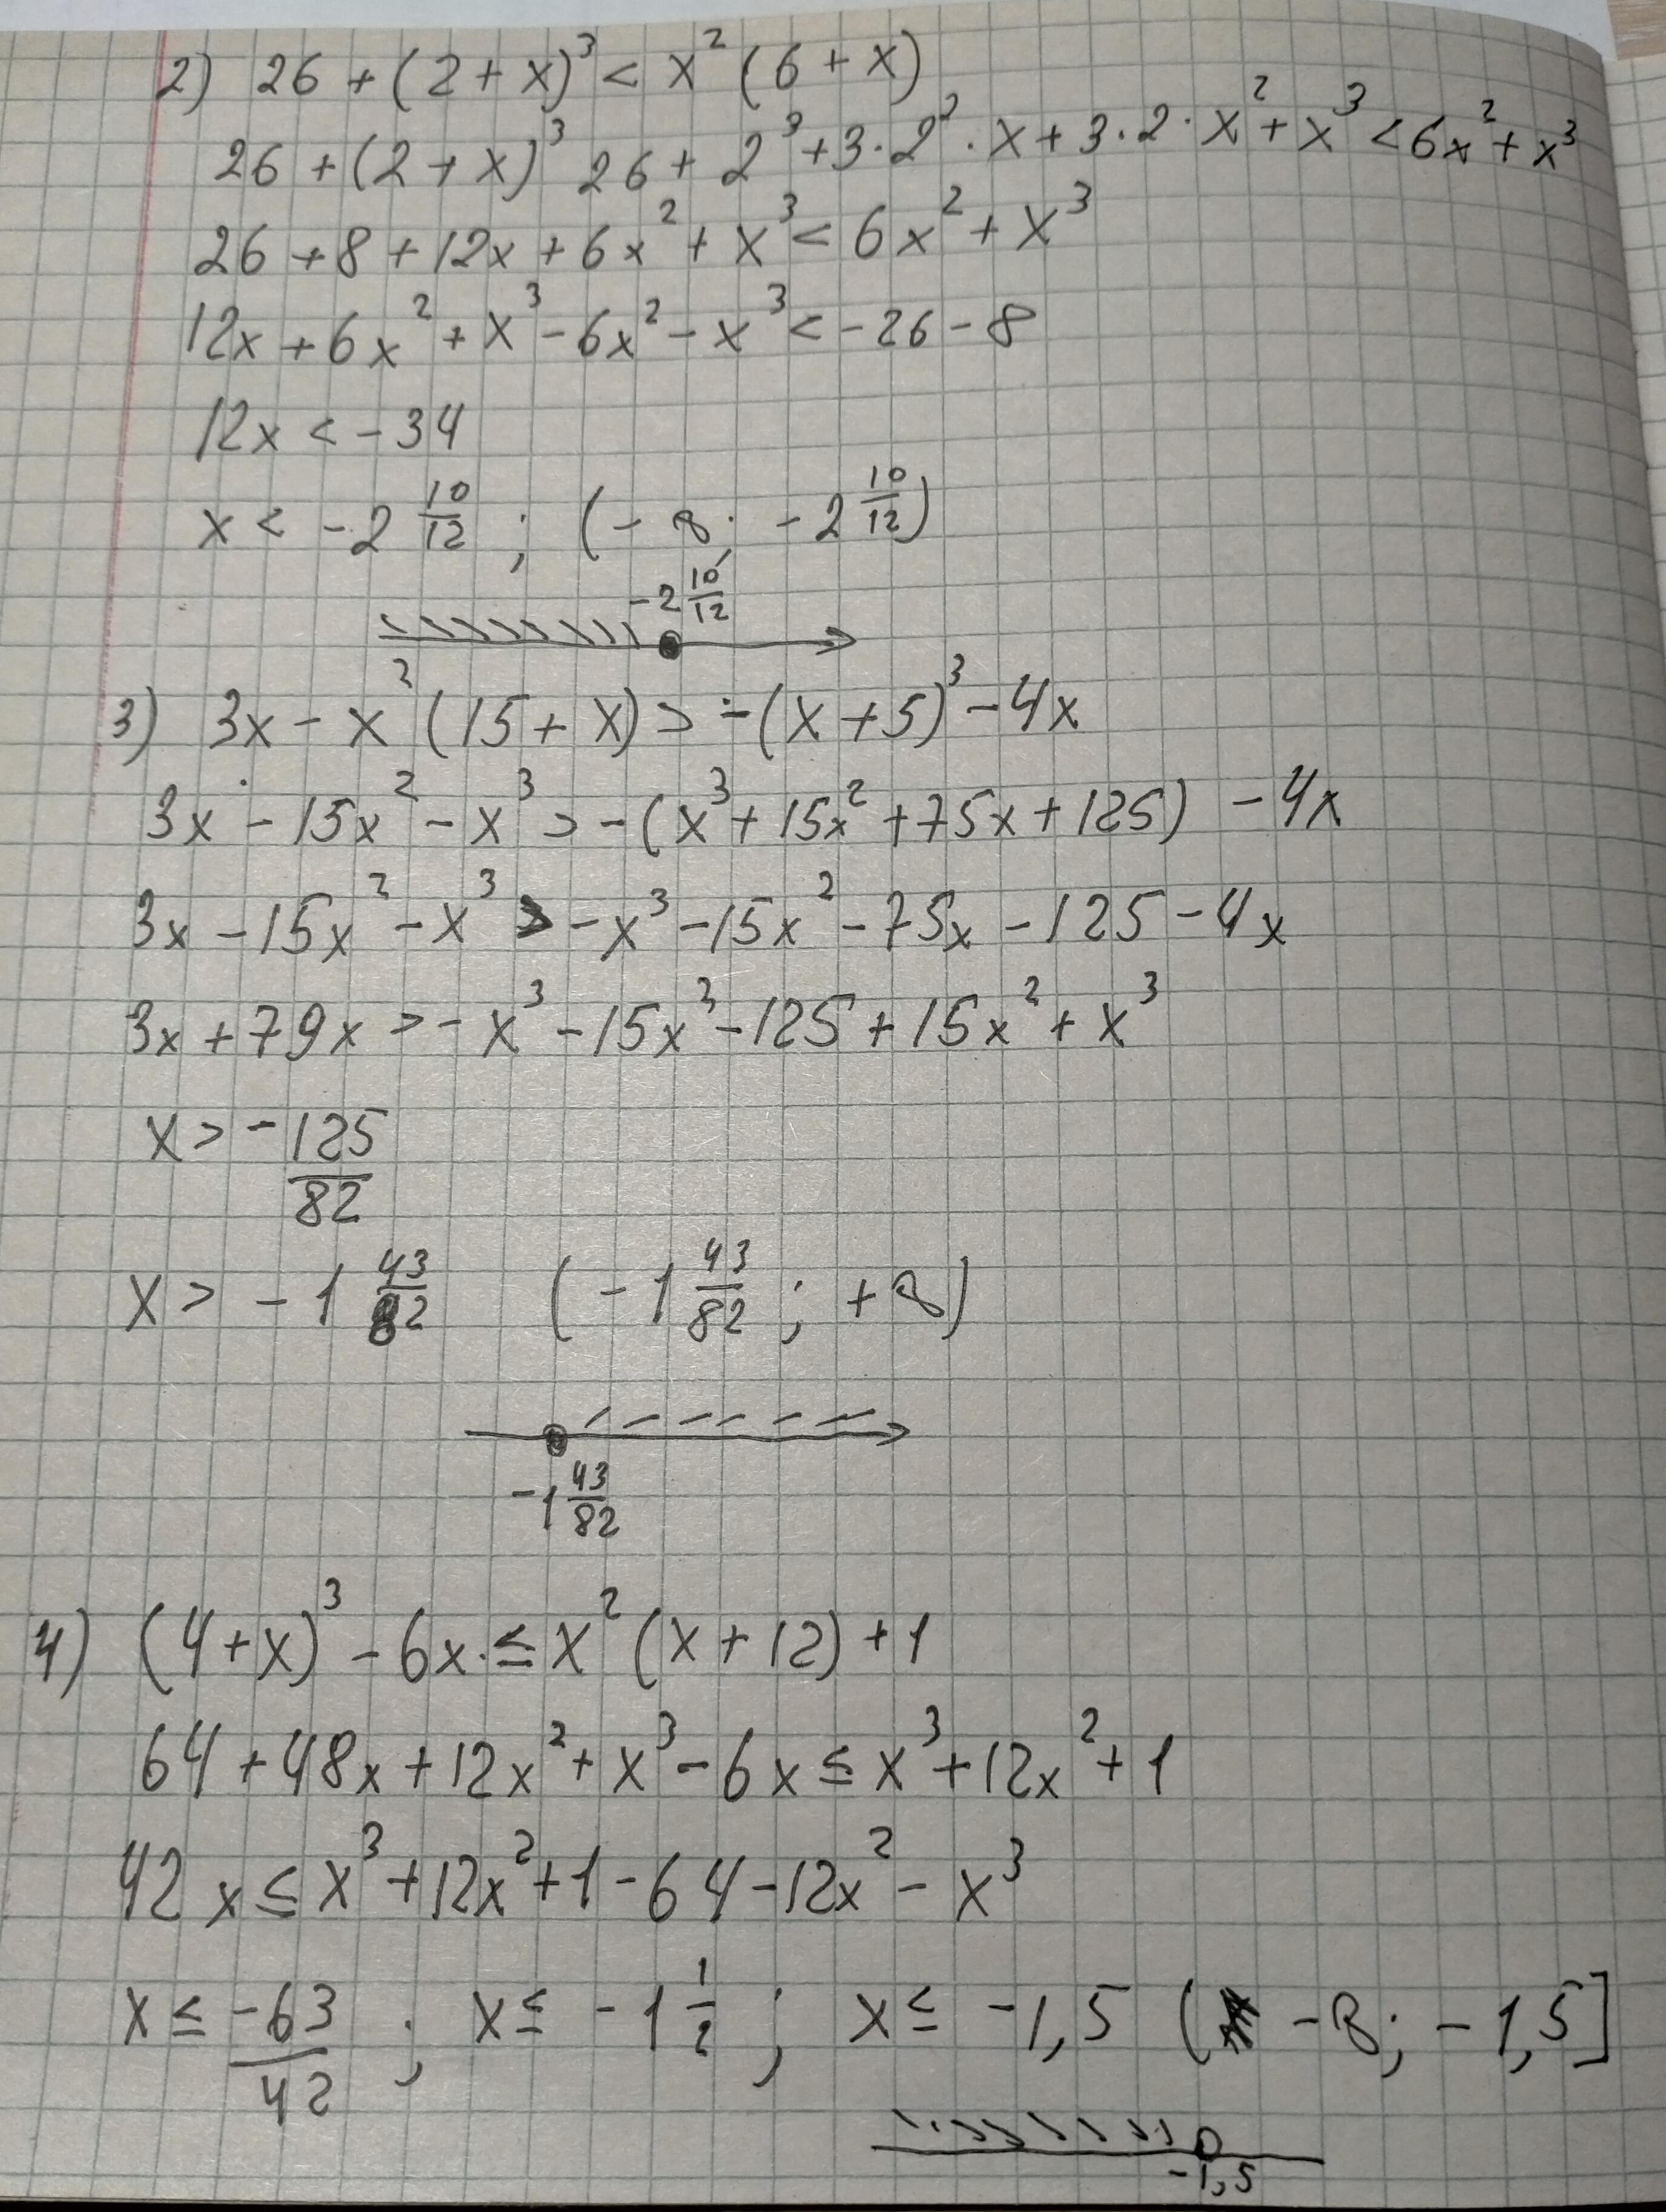 2) 26 + (2 + x)³ < x² (6 + x)
26 + (2 + x)³ 26 + 2³ + 3 · 2² · x + 3 · 2 · x² + x³ < 6x² + x³
26 + 8 + 12x + 6x² + x³ < 6x² + x³
12x + 6x² + x³ - 6x² - x³ < - 26 - 8
12x < - 34
x < - 2 10/12 ; (- ∞; - 2 10/12)
-2 10/12
3) 3x - x² (15 + x) > -(x + 5)³ - 4x
3x - 15x² - x³ > -(x³ + 15x² + 75x + 125) - 4x
3x - 15x² - x³ > -x³ - 15x² - 75x - 125 - 4x
3x + 79x > - x³ - 15x² - 125 + 15x² + x³
x > - 125/82
x > - 1 43/82 (- 1 43/82 ; + ∞)
-1 43/82
4) (4 + x)³ - 6x ≤ x² (x + 12) + 1
64 + 48x + 12x² + x³ - 6x ≤ x³ + 12x² + 1
42x ≤ x³ + 12x² + 1 - 64 - 12x² - x³
x ≤ -63/42 ; x ≤ - 1 1/2 ; x ≤ -1,5 (- ∞; - 1,5]
-1,5